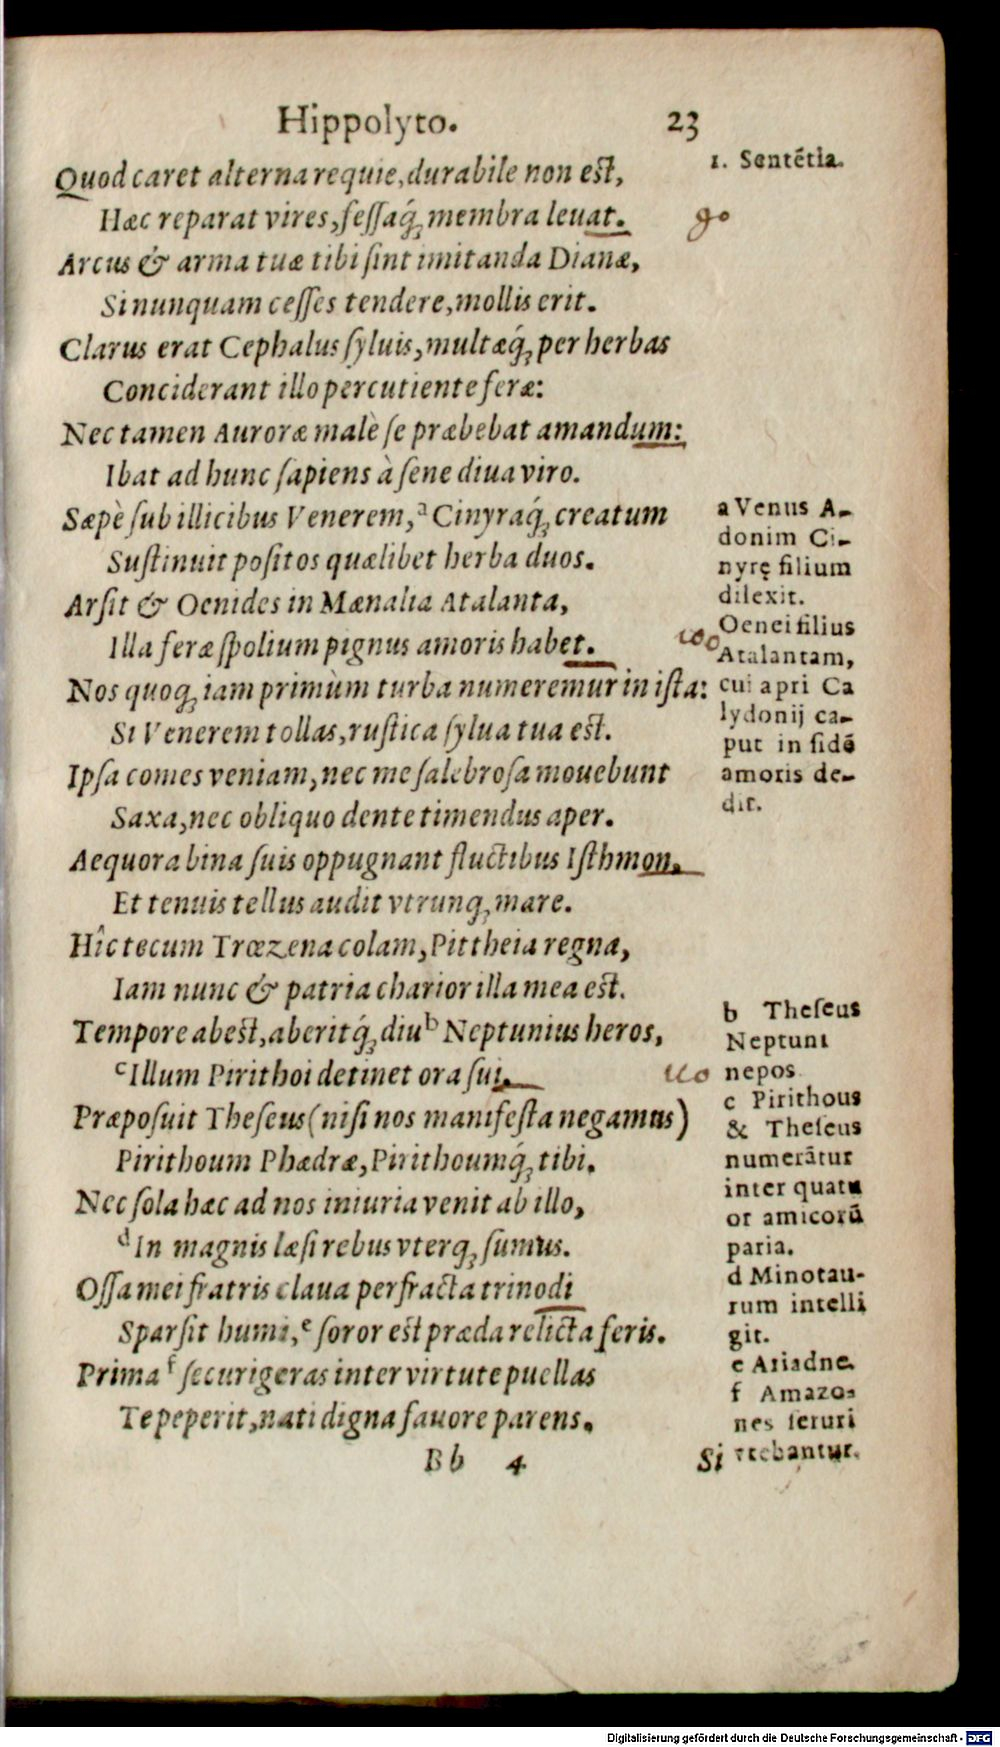 Hippolyto. 23
Quod caret alterna requie, durabile non est,
Hæc reparat vires, fessaq́; membra leuat.
Arcus & arma tuæ tibi sint imitanda Dianæ,
Si nunquam cesses tendere, mollis erit.
Clarus erat Cephalus syluis, multæq́; per herbas
Conciderant illo percutiente feræ:
Nec tamen Auroræ malè se præbebat amandum:
Ibat ad hunc sapiens à sene diua viro.
Sæpè sub illicibus Venerem, a Cinyraq́; creatum
Sustinuit positos quælibet herba duos.
Arsit & Oenides in Mænalia Atalanta,
Illa feræ spolium pignus amoris habet.
Nos quoq; iam primùm turba numeremur in ista:
Si Venerem tollas, rustica sylua tua est.
Ipsa comes veniam, nec me salebrosa mouebunt
Saxa, nec obliquo dente timendus aper.
Aequora bina suis oppugnant fluctibus Isthmon.
Et tenuis tellus audit vtrunq; mare.
Hîc tecum Trœzena colam, Pittheia regna,
Iam nunc & patria charior illa mea est.
Tempore abest, aberitq́; diu b Neptunius heros,
c Illum Pirithoi detinet ora sui.
Præposuit Theseus (nisi nos manifesta negamus)
Pirithoum Phædræ, Pirithoumq́; tibi.
Nec sola hæc ad nos iniuria venit ab illo,
d In magnis læsi rebus vterq; sumus.
Ossa mei fratris claua perfracta trinodi
Sparsit humi, e soror est præda relicta feris.
Prima f securigeras inter virtute puellas
Te peperit, nati digna fauore parens.
Bb 4 Si
1. Sentẽtia.
90
a Venus A-
donim Ci-
nyrę filium
dilexit.
Oenei filius
100
Atalantam,
cui apri Ca
lydonij ca-
put in fidẽ
amoris de-
dit.
b Theseus
Neptuni
nepos
110
c Pirithous
& Theseus
numerãtur
inter quatu
or amicorũ
paria.
d Minotau-
rum intelli
git.
e Ariadne.
f Amazo-
nes securi
vtebantur.
Digitalisierung gefördert durch die Deutsche Forschungsgemeinschaft - DFG